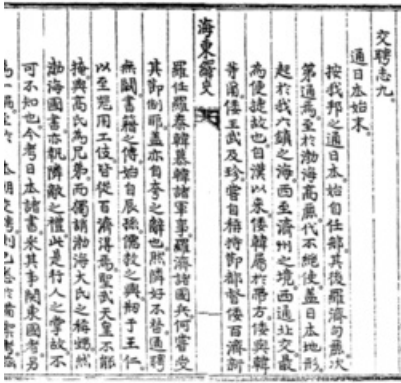 交聘志九
通日本始末
按我邦之通日本始自任那其後羅濟句麗次
第通焉至於渤海高麗代不絶使蓋日本地形
起於我六鎮之海西至濟州之境西通北交最
為便捷故也自漢以來倭韓屬於帶方倭與韓
等甫倭王武及珍嘗自稱持節都督倭百濟新
海東繹史
羅任羅秦韓慕韓諸軍事羅濟諸國兵何嘗受
其節制耶蓋亦自夸之辭也然隣好不替通聘
無闕書籍之傳始自辰孫儒教之興刱于王仁
以至冕用工伎皆從百濟得焉聖武天皇不能
掩與高氏為兄弟而獨誚渤海大氏之稱甥然
渤海國書亦執隣敵之禮此是行人之掌故不
可不知也今考日本諸書采其事関東國者另